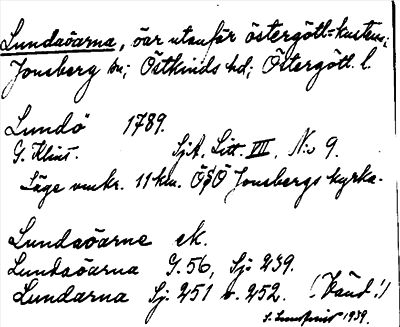 Lundaöarna, öar utanför östergötl=kusten;
Jonsberg sn; Östkinds hd; Östergötl. l.
Lundö 1789.
G. Klint. SjA. Litt. VII. N:o 9.
Läge omkr. 11 km. ÖSÖ Jonsbergs kyrka.
Lundaöarne ek.
Lundaöarna G. 56, Sj: 239.
Lundarna Sj: 251 o. 252. (Känd!)
S. Lundqvist 1939.